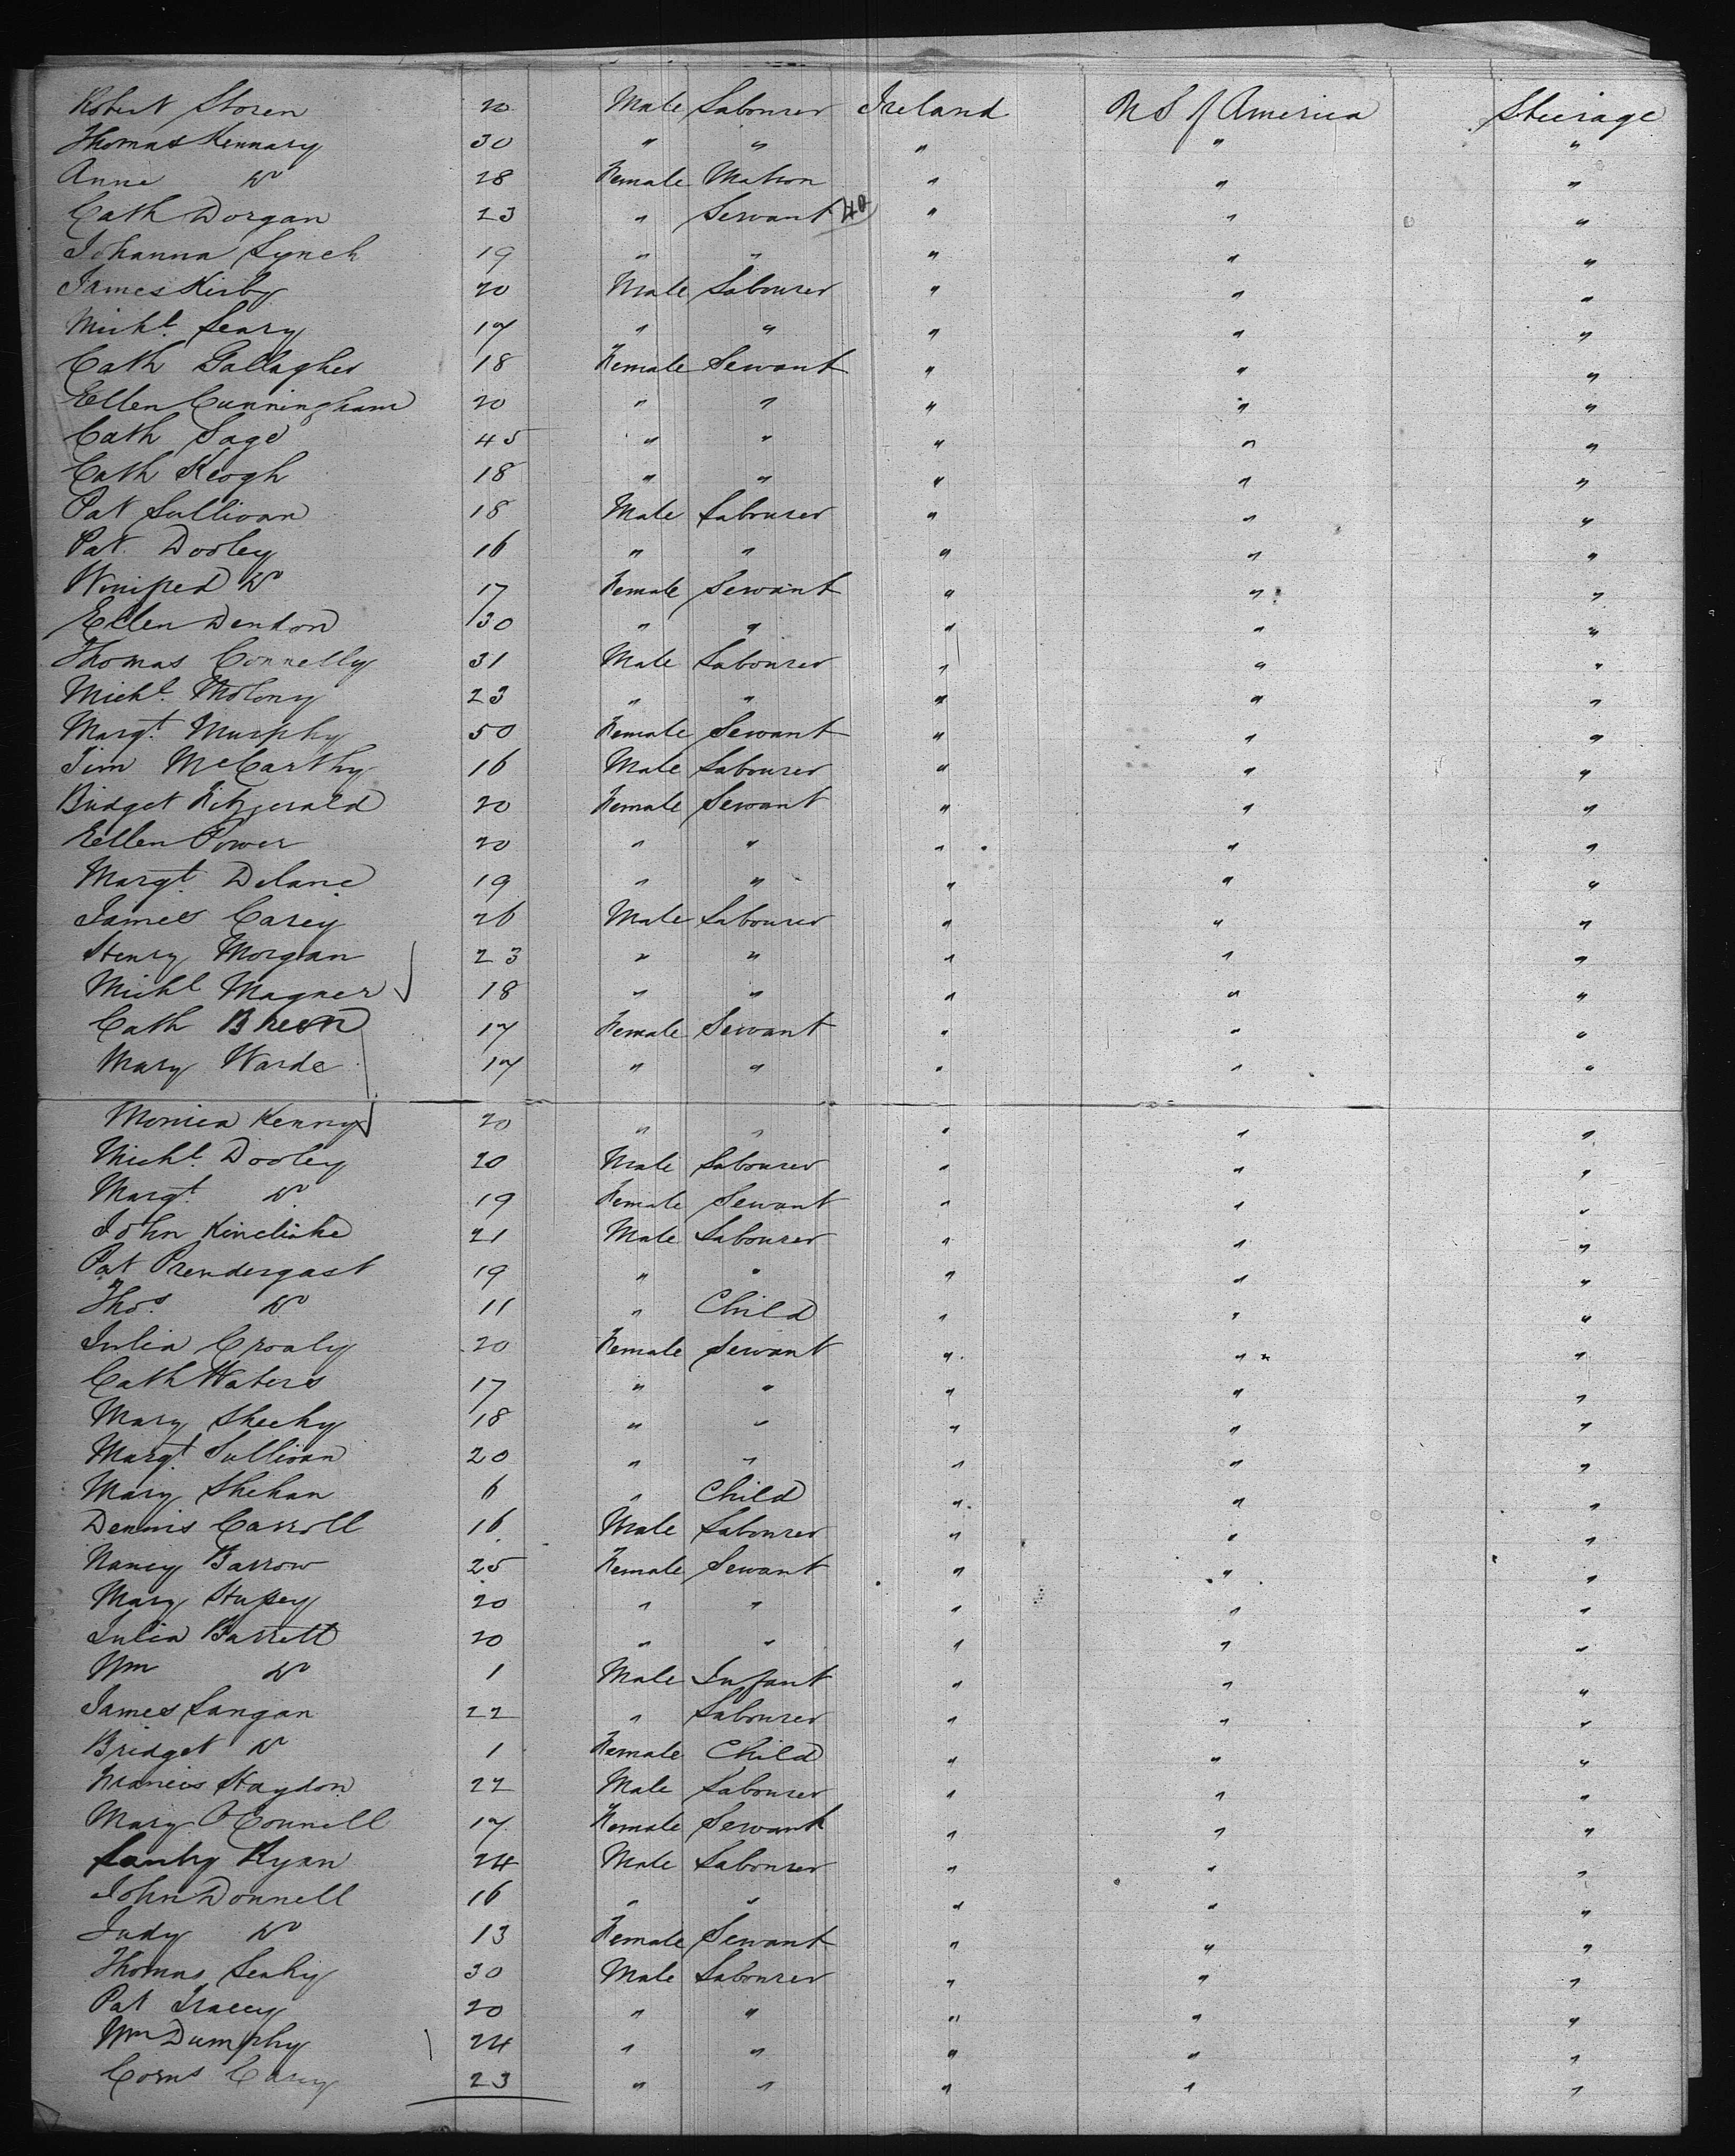 Robert Storen 20 Male Labourer Ireland U S of America Steerage
Thomas Kennary 30 " " " " "
Anne Do 28 Female Matron " " "
Cath Dorgan 23 " Servant 40 " " "
Johanna Lynch 19 " " " " "
James Kirby 20 Male Labourer " " "
Michl. Leary 17 " " " " "
Cath Gallagher 18 Female Servant " " "
Ellen Cunningham 20 " " " " "
Cath Sage 45 " " " " "
Cath Keogh 18 " " " " "
Pat Sullivan 18 Male Labourer " " "
Pat. Dooley 16 " " " " "
Winifred Do 17 Female Servant " " "
Ellen Dendon 30 " " " " "
Thomas Connelly 31 Male Labourer " " "
Michl. Molony 23 " " " " "
Margt. Murphy 50 Female Servant " " "
Tim McCarthy 16 Male Labourer " " "
Bridget Fitzgerald 20 Female Servant " " "
Ellen Power 20 " " " " "
Margt. Delane 19 " " " " "
James Carey 26 Male Labourer " " "
Henry Morgan 23 " " " " "
Michl Magner 18 " " " " "
Cath Breen 17 Female Servant " " "
Mary Warde 17 " " " " "
Monica Kenny 20 " " " " "
Michl. Dooley 20 Male Labourer " " "
Margt. Do 19 Female Servant " " "
John 21 Male Labourer " " "
Pat Prendergast 19 " " " " "
Thos. Do 11 " Child " " "
Julia Croaly 20 Female Servant " " "
Cath Waters 17 " " " " "
Mary Sheehy 18 " " " " "
Margt. Sullivan 20 " " " " "
Mary Shehan 6 " Child " " "
Dennis Carroll 16 Male Labourer " " "
Nancy Barrow 25 Female Servant " " "
Mary 20 " " " " "
Julia Barrett 20 " " " " "
Wm Do 1 Male Infant " " "
James Langan 22 " Labourer " " "
Bridget Do 1 Female Child " " "
Francis Haydon 22 Male Labourer " " "
Mary O'Connell 17 Female Servant " " "
Ryan 24 Male Labourer " " "
John Donnell 16 " " " " "
Judy Do 13 Female Servant " " "
Thomas Leahy 30 Male Labourer " " "
Pat Tracey 20 " " " " "
Wm Dumphy 24 " " " " "
Corns Carey 23 " " " " "